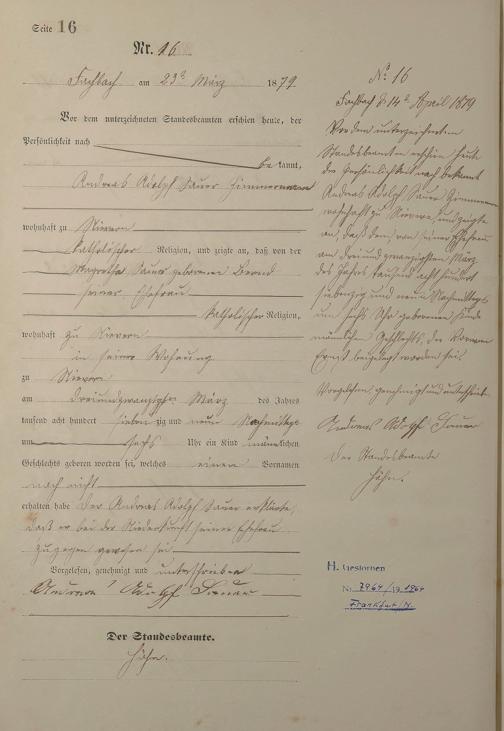 Seite 16
Nr. 16
Fachbach am 23ten März 1879
Vor dem unterzeichneten Standesbeamten erschien heute, der
Persönlichkeit nach
be kannt,
Andreas Adolph Sauer Zimmermann
wohnhaft zu Nievern
katholischer Religion, und zeigte an, daß von der
Sauer geborenen
seiner Ehefrau
katholischer Religion,
wohnhaft zu Nievern
in seiner Wohnung
zu Nievern
am dreiundzwanzigsten März des Jahres
tausend acht hundert siebenzig und neun Nachmittags
um sechs Uhr ein Kind männlichen
Geschlechts geboren worden sei, welches einen Vornamen
noch nicht
erhalten habe. Der Andreas Adolph Sauer erklärte,
daß er bei der Niederkunft seiner Ehefrau
zugegen gewesen sei
Vorgelesen, genehmigt und unterschrieben
Andreas Adolf Sauer
Der Standesbeamte.
No 16
Fachbach d. 14ten April 1879
Vor dem unterzeichneten
Standesbeamten erschien heute
der Persönlichkeit nach bekannt
Andreas Adolph Sauer Zimmermann
wohnhaft zu Nievern und zeigte
an, daß dem von seiner Ehefrau
am dreiundzwanzigsten März
des Jahres tausend acht hundert
siebenzig und neun Nachmittags
um sechs Uhr geborenen Kinde
männlichen Geschlechts, der Vorname
Ernst beigelegt worden sei.
Vorgelesen, genehmigt und unterschrieben
Andreas Adolf Sauer
Der Standesbeamte
H. Gestorben
Nr. 7964/1964
Frankfurt/M.